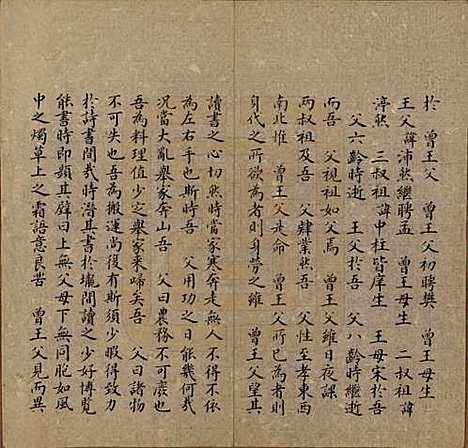 於　曾王父　曾王父初聘龔　曾王母生
王父諱沛然繼聘孟　曾王母生　二叔祖諱
淳然　三叔祖諱中柱皆庠生　王母宋於吾
父六齡時逝　王父於吾　父八齡時繼逝
而吾　父視祖如父焉　曾王父維日夜課
兩叔祖及吾　父肄業然吾　父性至孝東西
南北惟　曾王父是命　曾王父所已為者則
身代之所欲為者則身勞之雖　曾王父望其
讀書之心切然時當家寒奔走無人不得不依
為左右手也斯時吾　父用功之日能幾何哉
況當大亂舉家奔山吾　父曰農務不可廢也
吾為料理值少定舉家來歸矣吾　父曰諸物
不可失也吾為搬運尚後有斯須少暇得致力
於詩書間或時潛其書於壠間讀之少好博覽
能書時即題其壁曰上無父母下無同胞如風
中之燭草上之霜語意良苦　曾王父見而異